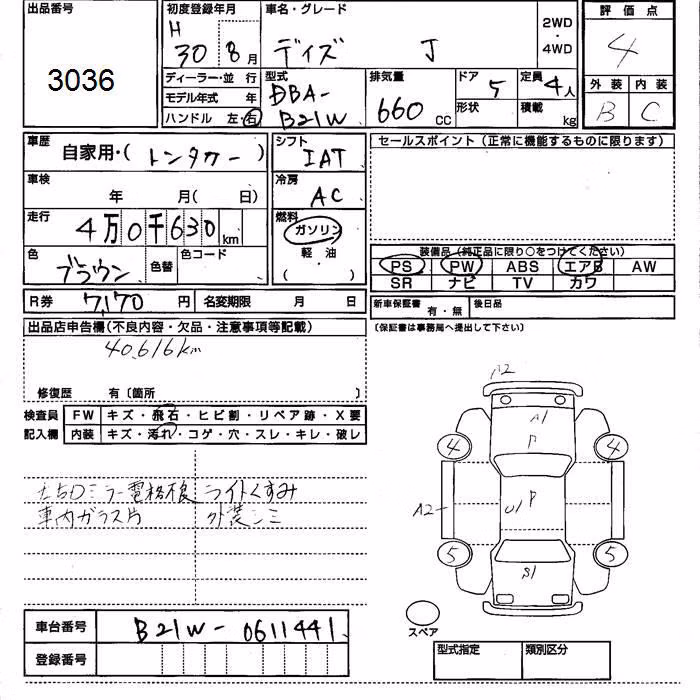 出品番号
3036
初度登録年月
H
30 8月
ディーラー・並 行
モデル年式 年
ハンドル 左・右
車名・グレード
デイズ J
2WD
・
4WD
型式
DBA-
B21W
排気量
660 CC
ドア 5
形状
定員 4人
積載 kg
評価点
4
外装 内装
B C
車歴
自家用・(レンタカー)
車検
年 月( 日)
走行
4万0千630km
色
ブラウン
色替
色コード
シフト
IAT
冷房
AC
燃料
ガソリン
軽・油
( )
セールスポイント(正常に機能するものに限ります)
装備品(純正品に限り○をつけてください)
PS PW ABS エアB AW
SR ナビ TV カワ
R券 7,170 円 名変期限 月 日
新車保証書 有・無 後日品
〔保証書は事務局へ提出して下さい〕
出品店申告欄(不良内容・欠品・注意事項等記載)
40,616km
修復歴 有〔箇所 〕
検査員 FW キズ・飛石・ヒビ割・リペア跡・X要
記入欄 内装 キズ・汚れ・コゲ・穴・スレ・キレ・破レ
ミラー電格不良 ライトくすみ
車内ガラス片 外装シミ
A2
A1
P
4 4
A2 U1 P
5 5
S1
スペア
車台番号 B21W-0611441
登録番号
型式指定 類別区分